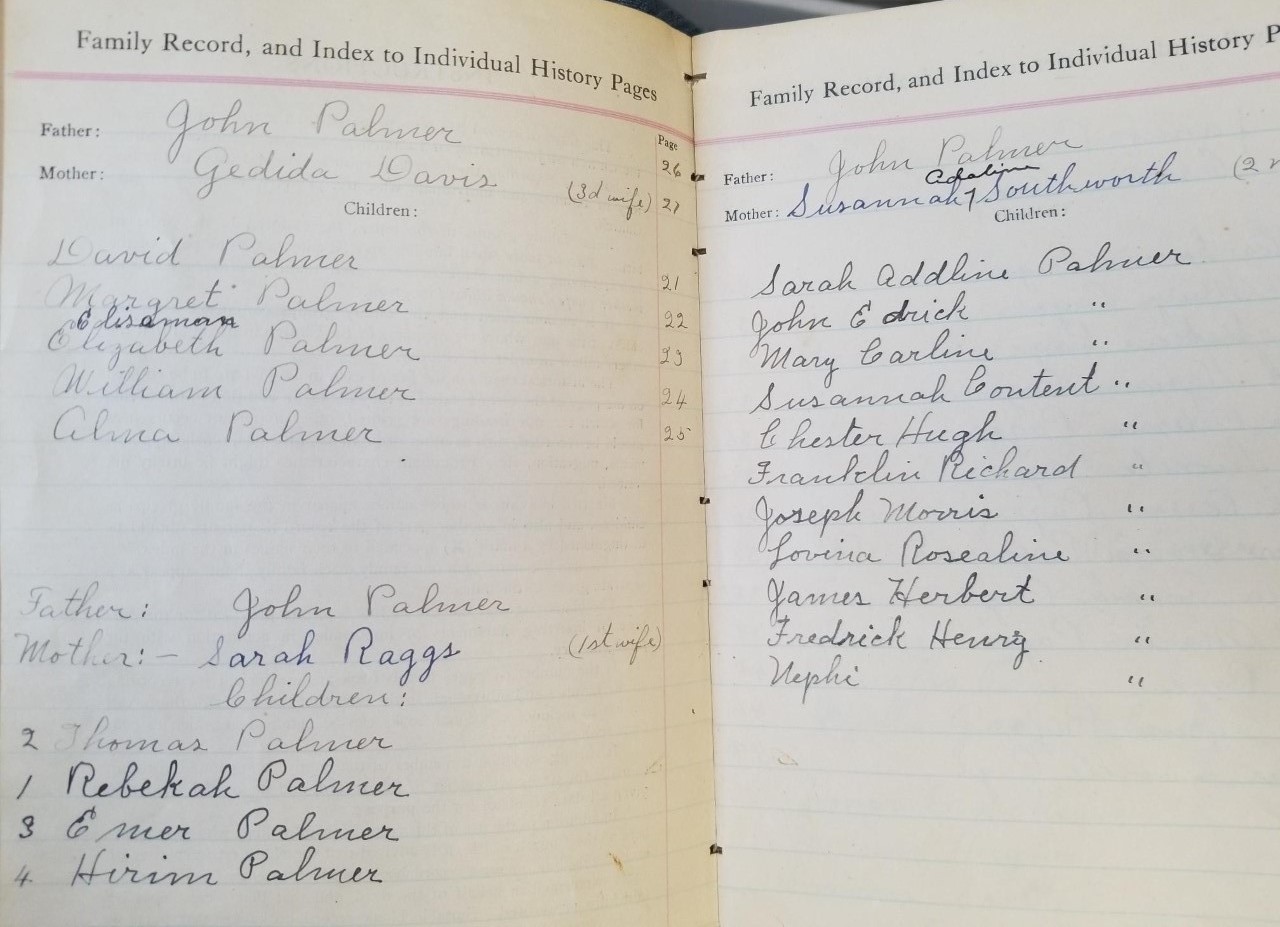 Family Record, and Index to Individual History Pages
Father: John Palmer
Page
Mother: Gedida Davis 26
(3d wife) 27
Children:
David Palmer
Margret Palmer 21
Elisaman 22
Elizabeth Palmer 23
William Palmer 24
Alma Palmer 25
Father: John Palmer
Mother:- Sarah Raggs (1st wife)
Children:
2 Thomas Palmer
1 Rebekah Palmer
3 Emer Palmer
4 Hirim Palmer
Family Record, and Index to Individual History P
Father: John Palmer
Adaline
Mother: Susannah Southworth (2
Children:
Sarah Addline Palmer
John Edrick "
Mary Carline "
Susannah Content "
Chester Hugh "
Franklin Richard "
Joseph Morris "
Lovina Rosealine "
James Herbert "
Fredrick Henry "
Nephi "